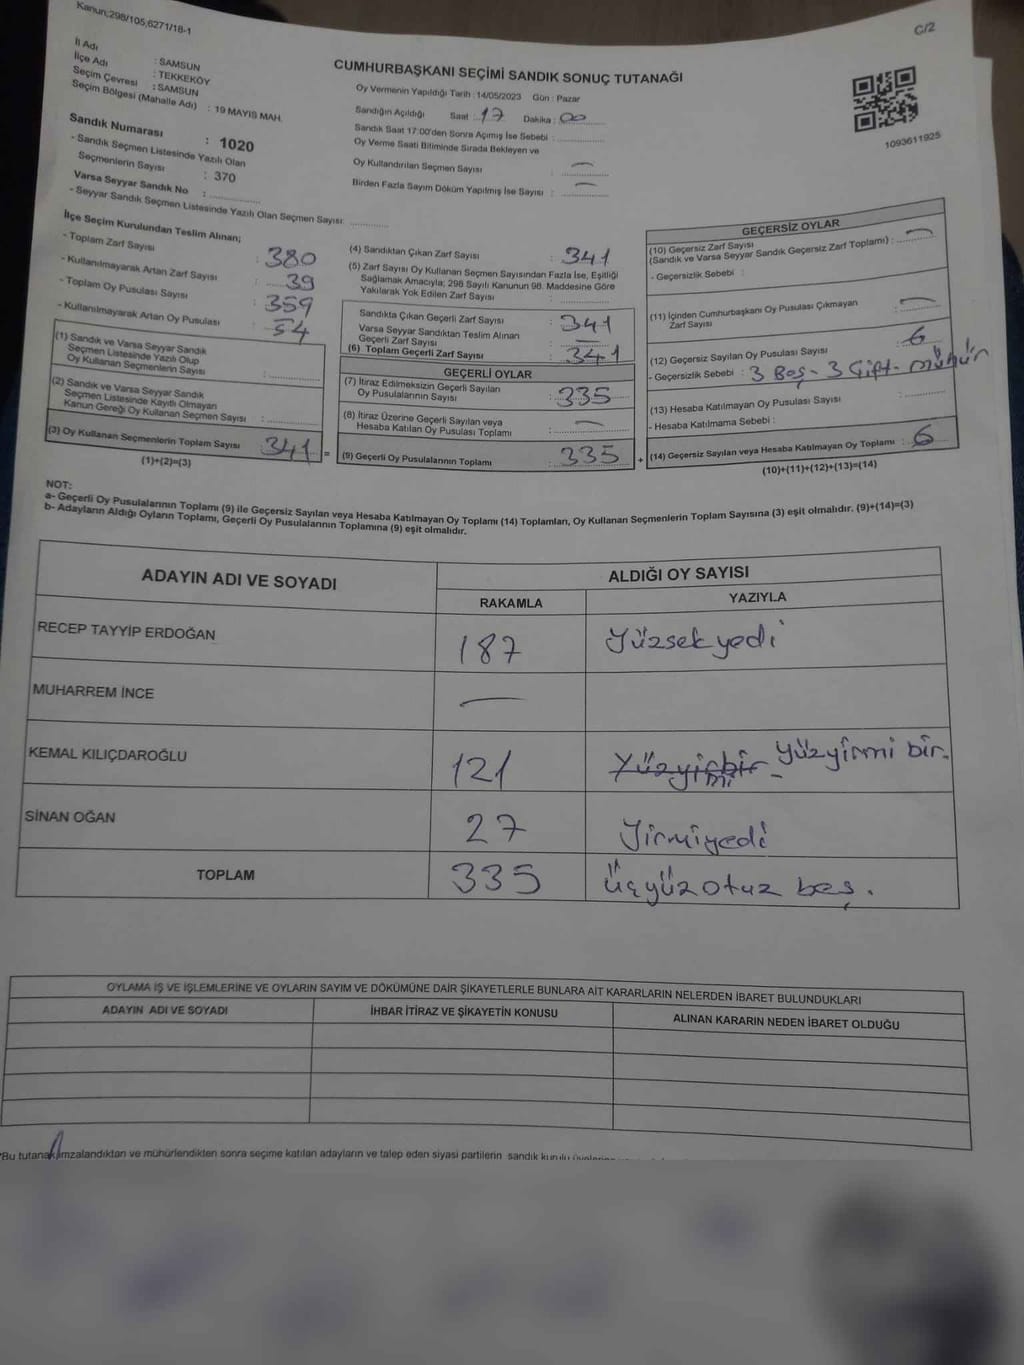 Kanun;298/105,6271/18-1
C/2
İl Adı : SAMSUN
İlçe Adı : TEKKEKÖY
Seçim Çevresi : SAMSUN
Seçim Bölgesi (Mahalle Adı) : 19 MAYIS MAH.
Sandık Numarası : 1020
- Sandık Seçmen Listesinde Yazılı Olan
Seçmenlerin Sayısı : 370
Varsa Seyyar Sandık No :
- Seyyar Sandık Seçmen Listesinde Yazılı Olan Seçmen Sayısı:
CUMHURBAŞKANI SEÇİMİ SANDIK SONUÇ TUTANAĞI
Oy Vermenin Yapıldığı Tarih : 14/05/2023 Gün : Pazar
Sandığın Açıldığı Saat : 17 Dakika : 00
Sandık Saat 17:00'den Sonra Açımış İse Sebebi :
Oy Verme Saati Bitiminde Sırada Bekleyen ve
Oy Kullandırılan Seçmen Sayısı : —
Birden Fazla Sayım Döküm Yapılmış İse Sayısı : —
1093611925
İlçe Seçim Kurulundan Teslim Alınan;
- Toplam Zarf Sayısı : 380
- Kullanılmayarak Artan Zarf Sayısı : 39
- Toplam Oy Pusulası Sayısı : 359
- Kullanılmayarak Artan Oy Pusulası : 54
(1) Sandık ve Varsa Seyyar Sandık
Seçmen Listesinde Yazılı Olup
Oy Kullanan Seçmenlerin Sayısı :
(2) Sandık ve Varsa Seyyar Sandık
Seçmen Listesinde Kayıtlı Olmayan
Kanun Gereği Oy Kullanan Seçmen Sayısı :
(3) Oy Kullanan Seçmenlerin Toplam Sayısı : 341 =
(1)+(2)=(3)
(4) Sandıktan Çıkan Zarf Sayısı : 341
(5) Zarf Sayısı Oy Kullanan Seçmen Sayısından Fazla İse, Eşitliği
Sağlamak Amacıyla; 298 Sayılı Kanunun 98. Maddesine Göre
Yakılarak Yok Edilen Zarf Sayısı :
Sandıkta Çıkan Geçerli Zarf Sayısı : 341
Varsa Seyyar Sandıktan Teslim Alınan
Geçerli Zarf Sayısı : —
(6) Toplam Geçerli Zarf Sayısı : 341
GEÇERLİ OYLAR
(7) İtiraz Edilmeksizin Geçerli Sayılan
Oy Pusulalarının Sayısı : 335
(8) İtiraz Üzerine Geçerli Sayılan veya
Hesaba Katılan Oy Pusulası Toplamı : —
(9) Geçerli Oy Pusulalarının Toplamı : 335 +
GEÇERSİZ OYLAR
(10) Geçersiz Zarf Sayısı
(Sandık ve Varsa Seyyar Sandık Geçersiz Zarf Toplamı) : —
- Geçersizlik Sebebi :
(11) İçinden Cumhurbaşkanı Oy Pusulası Çıkmayan
Zarf Sayısı : —
(12) Geçersiz Sayılan Oy Pusulası Sayısı : 6
- Geçersizlik Sebebi : 3 Boş - 3 Çift - mühür
(13) Hesaba Katılmayan Oy Pusulası Sayısı :
- Hesaba Katılmama Sebebi :
(14) Geçersiz Sayılan veya Hesaba Katılmayan Oy Toplamı : 6
(10)+(11)+(12)+(13)=(14)
NOT:
a- Geçerli Oy Pusulalarının Toplamı (9) ile Geçersiz Sayılan veya Hesaba Katılmayan Oy Toplamı (14) Toplamları, Oy Kullanan Seçmenlerin Toplam Sayısına (3) eşit olmalıdır. (9)+(14)=(3)
b- Adayların Aldığı Oyların Toplamı, Geçerli Oy Pusulalarının Toplamına (9) eşit olmalıdır.
ADAYIN ADI VE SOYADI ALDIĞI OY SAYISI
RAKAMLA YAZIYLA
RECEP TAYYİP ERDOĞAN 187 Yüzsekyedi
MUHARREM İNCE —
KEMAL KILIÇDAROĞLU 121 Yüzyirmibir - Yüzyirmi bir.
SİNAN OĞAN 27 Yirmiyedi
TOPLAM 335 üçyüzotuz beş.
OYLAMA İŞ VE İŞLEMLERİNE VE OYLARIN SAYIM VE DÖKÜMÜNE DAİR ŞİKAYETLERLE BUNLARA AİT KARARLARIN NELERDEN İBARET BULUNDUKLARI
ADAYIN ADI VE SOYADI İHBAR İTİRAZ VE ŞİKAYETİN KONUSU ALINAN KARARIN NEDEN İBARET OLDUĞU
*Bu tutanak imzalandıktan ve mühürlendikten sonra seçime katılan adayların ve talep eden siyasi partilerin sandık kurulu üyelerine